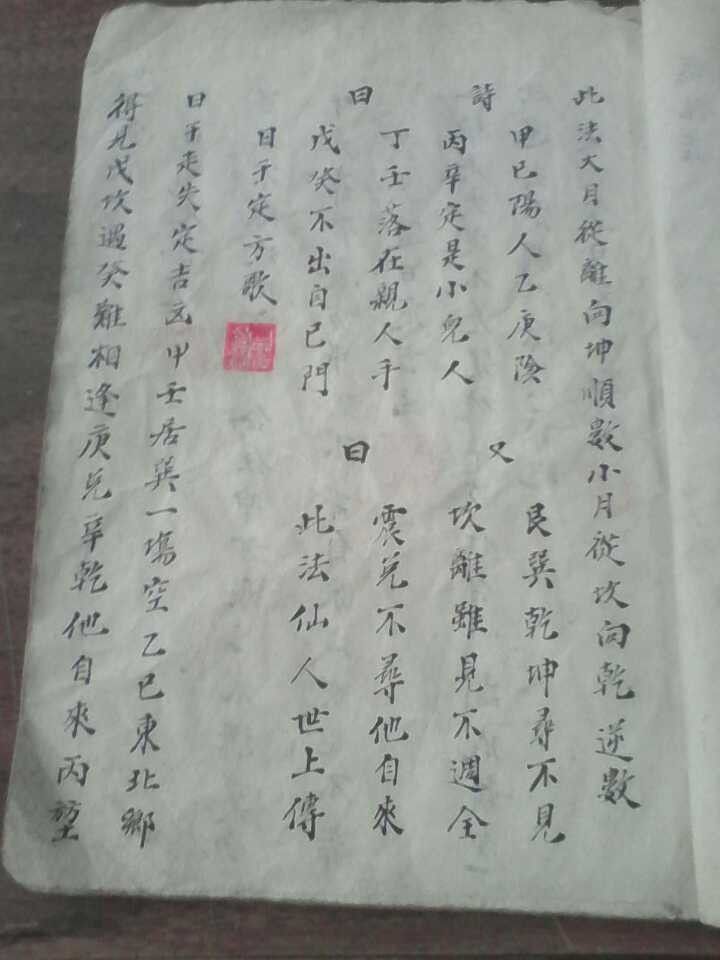 此法大月從離向坤順數小月從坎向乾逆數
詩曰
甲已陽人乙庚陰
丙辛定是小兒人
丁壬落在親人手
戊癸不出自已門
又曰
艮巽乾坤尋不見
坎離雖見不週全
震兌不尋他自來
此法仙人世上傳
日干定方歌
日干走失定吉凶甲壬居巽一塲空乙已東北鄉
得見戊坎遇癸難相逢庚兌辛乾他自來丙